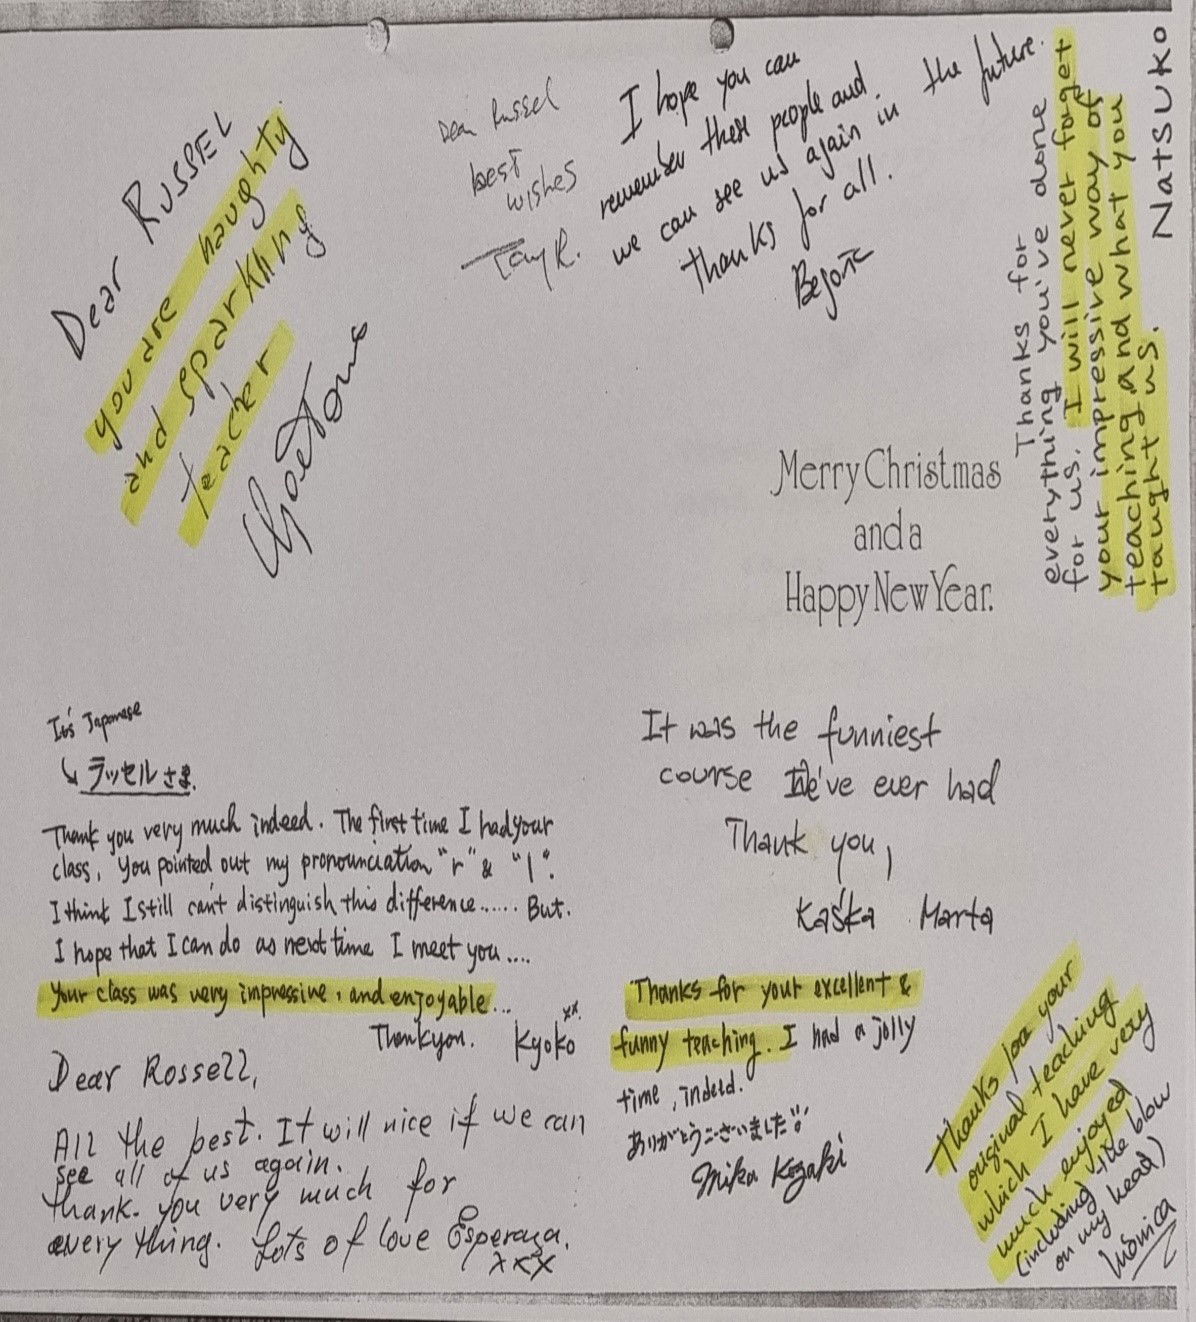 Dear RUSSEL
you are naughty
and sparkling
teacher
Dear Russel
best
wishes
I hope you can
remember these people and
we can see us again in the future.
thanks for all.
Thanks for
everything you've done
for us. I will never forget
your impressive way of
teaching and what you
taught us.
NATSUKO
Merry Christmas
and a
Happy New Year.
It's Japanese
ラッセルさま
Thank you very much indeed. The first time I had your
class, you pointed out my pronounciation "r" & "l".
I think I still can't distinguish this difference...... But.
I hope that I can do as next time I meet you....
Your class was very impressive, and enjoyable...
Thankyou. Kyoko xx
Dear Rossell,
All the best. It will nice if we can
see all of us again.
thank. you very much for
every thing. Lots of love Esperaza.
xxx
It was the funniest
course We've ever had
Thank you,
Kaśka Marta
Thanks for your excellent &
funny teaching. I had a jolly
time, indeed.
ありがとうございました
Mika Kozaki
Thanks for your
original teaching
which I have very
much enjoyed
(including the blow
on my head)
Mónica